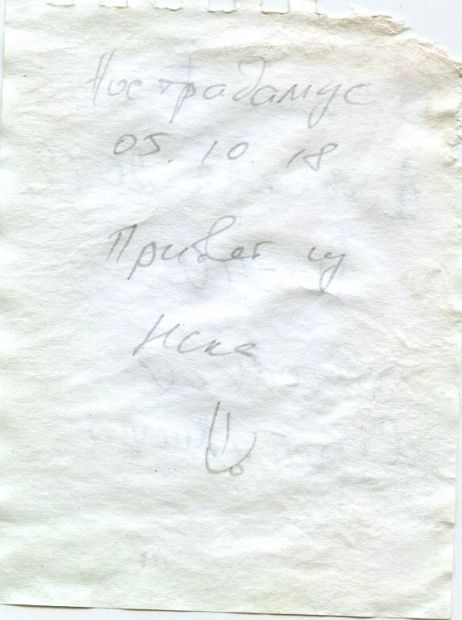 Нострадамус
05.10.18
Привет из
Нска